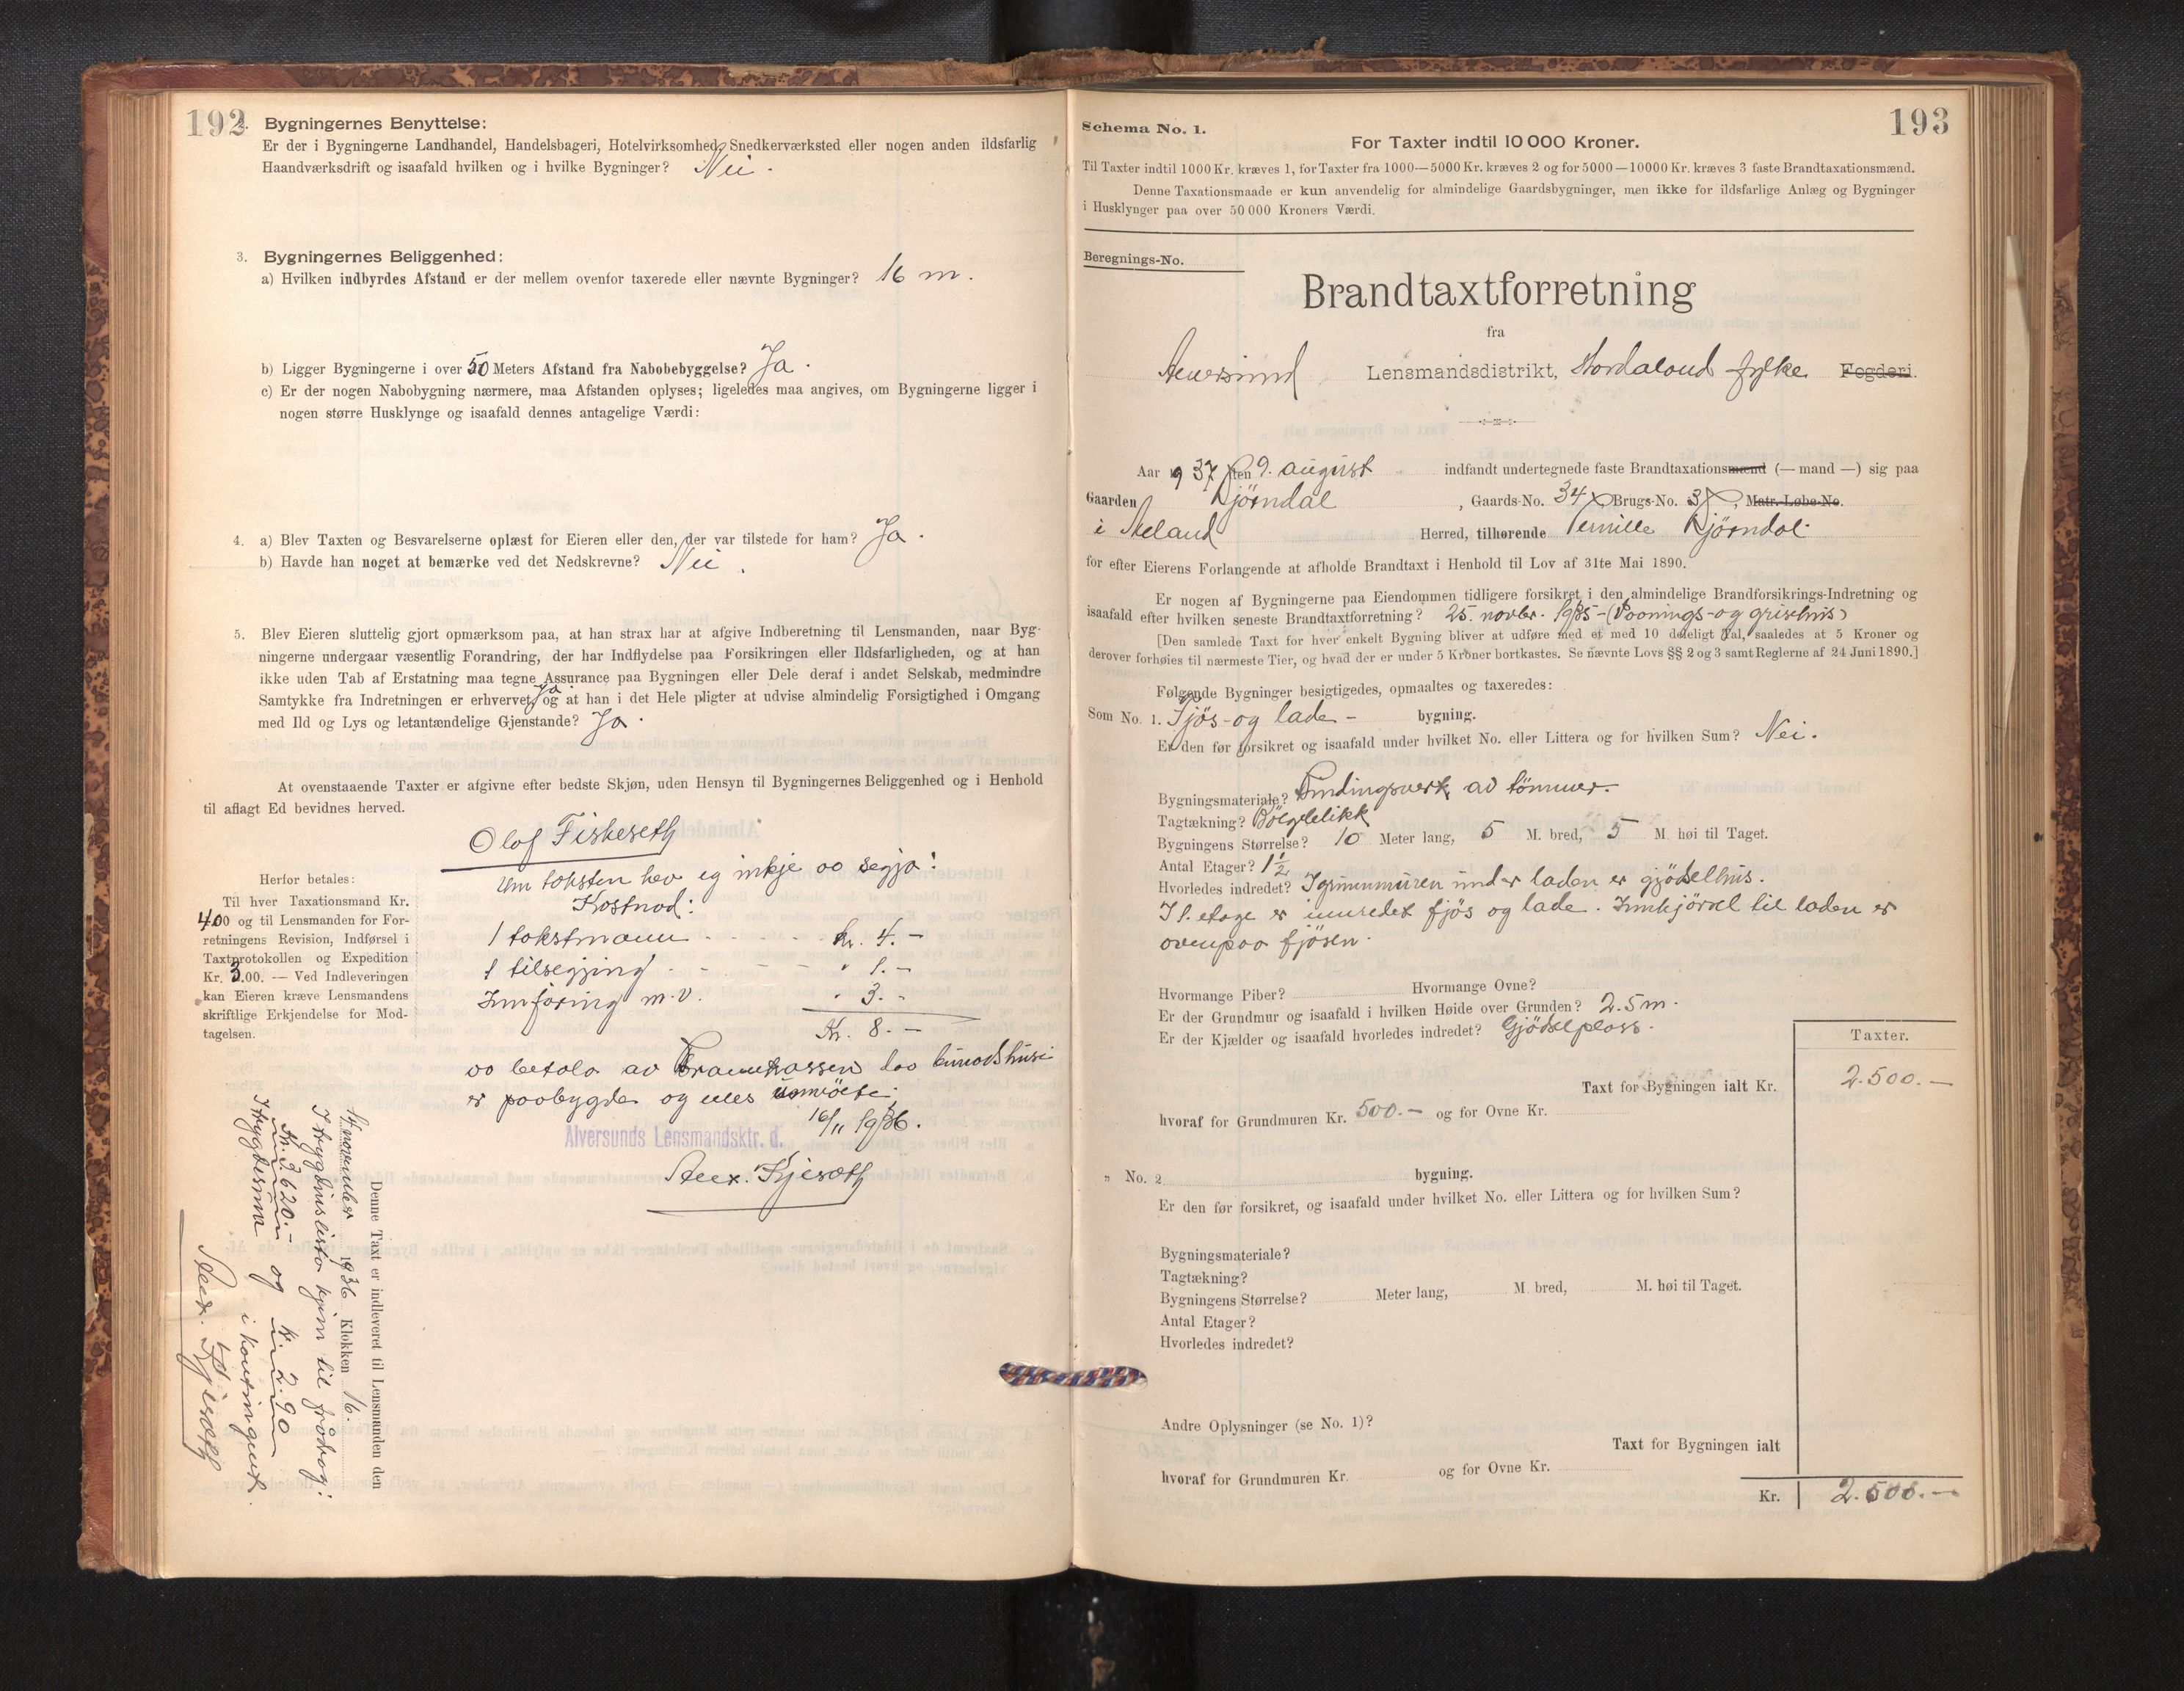 192
2. Bygningernes Benyttelse:
Er der i Bygningerne Landhandel, Handelsbageri, Hotelvirksomhed, Snedkerværksted eller nogen anden ildsfarlig
Haandværksdrift og isaafald hvilken og i hvilke Bygninger? Nei.
3. Bygningernes Beliggenhed:
a) Hvilken indbyrdes Afstand er der mellem ovenfor taxerede eller nævnte Bygninger? 16 m.
b) Ligger Bygningerne i over 50 Meters Afstand fra Nabobebyggelse? Ja.
c) Er der nogen Nabobygning nærmere, maa Afstanden oplyses; ligeledes maa angives, om Bygningerne ligger i
nogen større Husklynge og isaafald dennes antagelige Værdi:
4. a) Blev Taxten og Besvarelserne oplæst for Eieren eller den, der var tilstede for ham? Ja.
b) Havde han noget at bemærke ved det Nedskrevne? Nei.
5. Blev Eieren sluttelig gjort opmærksom paa, at han strax har at afgive Indberetning til Lensmanden, naar Byg-
ningerne undergaar væsentlig Forandring, der har Indflydelse paa Forsikringen eller Ildsfarligheden, og at han
ikke uden Tab af Erstatning maa tegne Assurance paa Bygningen eller Dele deraf i andet Selskab, medmindre
Samtykke fra Indretningen er erhvervet, Ja og at han i det Hele pligter at udvise almindelig Forsigtighed i Omgang
med Ild og Lys og letantændelige Gjenstande? Ja.
At ovenstaaende Taxter er afgivne efter bedste Skjøn, uden Hensyn til Bygningernes Beliggenhed og i Henhold
til aflagt Ed bevidnes herved.
Olaf Fiskeseth
Um taksten hev eg inkje aa segja!
Kostnad:
1 takstmann - - - kr. 4.-
1 tilsegjing - - - " 1.-
Innføring m.v. " 3.-
Kr. 8.-
aa betala av Brannkassen daa
er paabygde og
16/11 1936.
Alversunds Lensmandsktr. d.
Herfor betales:
Til hver Taxationsmand Kr.
4.00 og til Lensmanden for For-
retningens Revision, Indførsel i
Taxtprotokollen og Expedition
Kr. 3.00. — Ved Indleveringen
kan Eieren kræve Lensmandens
skriftlige Erkjendelse for Mod-
tagelsen.
Denne Taxt er indleveret til Lensmanden den
november 1936 Klokken 16.
I trygdingslista kjem til frådrag:
Kr. 3.620.- og kr. 2.90
i trygdesum i kontingent.
193
Schema No. 1.
For Taxter indtil 10 000 Kroner.
Til Taxter indtil 1000 Kr. kræves 1, for Taxter fra 1000—5000 Kr. kræves 2 og for 5000—10000 Kr. kræves 3 faste Brandtaxationsmænd.
Denne Taxationsmaade er kun anvendelig for almindelige Gaardsbygninger, men ikke for ildsfarlige Anlæg og Bygninger
i Husklynger paa over 50 000 Kroners Værdi.
Beregnings-No.
Brandtaxtforretning
fra
Alversund Lensmandsdistrikt, Hordaland fylke Fogderi.
Aar 1937 den 9. august indfandt undertegnede faste Brandtaxationsmænd (— mand —) sig paa
Gaarden Kjörndal, Gaards-No. 34 Brugs-No. 3, Matr.-Løbe-No.
i Herred, tilhørende Pernille Kjörndal
for efter Eierens Forlangende at afholde Brandtaxt i Henhold til Lov af 31te Mai 1890.
Er nogen af Bygningerne paa Eiendommen tidligere forsikret i den almindelige Brandforsikrings-Indretning og
isaafald efter hvilken seneste Brandtaxtforretning? 25. novbr. 1935 - (Voonings- og grisehus)
[Den samlede Taxt for hver enkelt Bygning bliver at udføre med et med 10 deleligt Tal, saaledes at 5 Kroner og
derover forhøies til nærmeste Tier, og hvad der er under 5 Kroner bortkastes. Se nævnte Lovs §§ 2 og 3 samt Reglerne af 24 Juni 1890.]
Følgende Bygninger besigtigedes, opmaaltes og taxeredes:
Som No. 1. Fjös- og lade- bygning.
Er den før forsikret og isaafald under hvilket No. eller Littera og for hvilken Sum? Nei.
Bygningsmateriale? Bindingsverk av tömmer.
Tagtækning? Bölgeblikk
Bygningens Størrelse? 10 Meter lang, 5 M. bred, 5 M. høi til Taget.
Antal Etager? 1½
Hvorledes indredet? I grunnmuren under laden er gjödselhus.
I 1. etage er innredet fjös og lade. Innkjörsel til laden er
ovenpaa fjösen.
Hvormange Piber? Hvormange Ovne?
Er der Grundmur og isaafald i hvilken Høide over Grunden? 2.5 m.
Er der Kjælder og isaafald hvorledes indredet? Gjödselplass.
Taxter.
Taxt for Bygningen ialt Kr. 2.500.—
hvoraf for Grundmuren Kr. 500.— og for Ovne Kr.
" No. 2 bygning.
Er den før forsikret, og isaafald under hvilket No. eller Littera og for hvilken Sum?
Bygningsmateriale?
Tagtækning?
Bygningens Størrelse? Meter lang, M. bred, M. høi til Taget.
Antal Etager?
Hvorledes indredet?
Andre Oplysninger (se No. 1)?
Taxt for Bygningen ialt
hvoraf for Grundmuren Kr. og for Ovne Kr.
Kr. 2.500.—